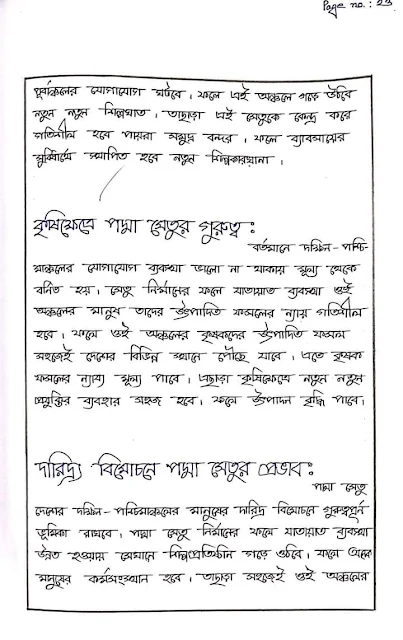 Page no.: 23
পূর্বাঞ্চলের যোগাযোগ ঘটবে। ফলে এই অঞ্চলে গড়ে উঠবে
নতুন নতুন শিল্পখাত। তাছাড়া এই সেতুকে কেন্দ্র করে
গতিশীল হবে পায়রা সমুদ্র বন্দর। ফলে ব্যাবসায়ের
সুবিধার্থে স্থাপিত হবে নতুন শিল্পকারখানা।
কৃষিক্ষেত্রে পদ্মা সেতুর গুরুত্ব:
বর্তমানে দক্ষিন-পশ্চি-
মাঞ্চলের যোগাযোগ ব্যবস্থা ভালো না থাকায় মূল্য থেকে
বঞ্চিত হয়। সেতু নির্মানের ফলে যাতায়াত ব্যবস্থা ওই
অঞ্চলের মানুষ তাদের উৎপাদিত ফসলের ন্যায় গতিশীল
হবে। ফলে ওই অঞ্চলের কৃষকদের উৎপাদিত ফসল
সহজেই দেশের বিভিন্ন স্থানে পৌছে যাবে। এতে কৃষক
ফসলের ন্যায্য মূল্য পাবে। এছাড়া কৃষিক্ষেত্রে নতুন নতুন
প্রযুক্তির ব্যবহার সহজ হবে। ফলে উৎপাদন বৃদ্ধি পাবে।
দারিদ্র্য বিমোচনে পদ্মা সেতুর প্রভাব:
পদ্মা সেতু
দেশের দক্ষিন-পশ্চিমাঞ্চলের মানুষের দারিদ্র বিমোচনে গুরুত্বপূর্ন
ভূমিকা রাখবে। পদ্মা সেতু নির্মানের ফলে যাতায়াত ব্যবস্থা
উন্নত হওয়ায় সেখানে শিল্পপ্রতিষ্ঠান গড়ে ওঠবে। ফলে অনেক
মানুষের কর্মসংস্থান হবে। তাছাড়া সহজেই ওই অঞ্চলের